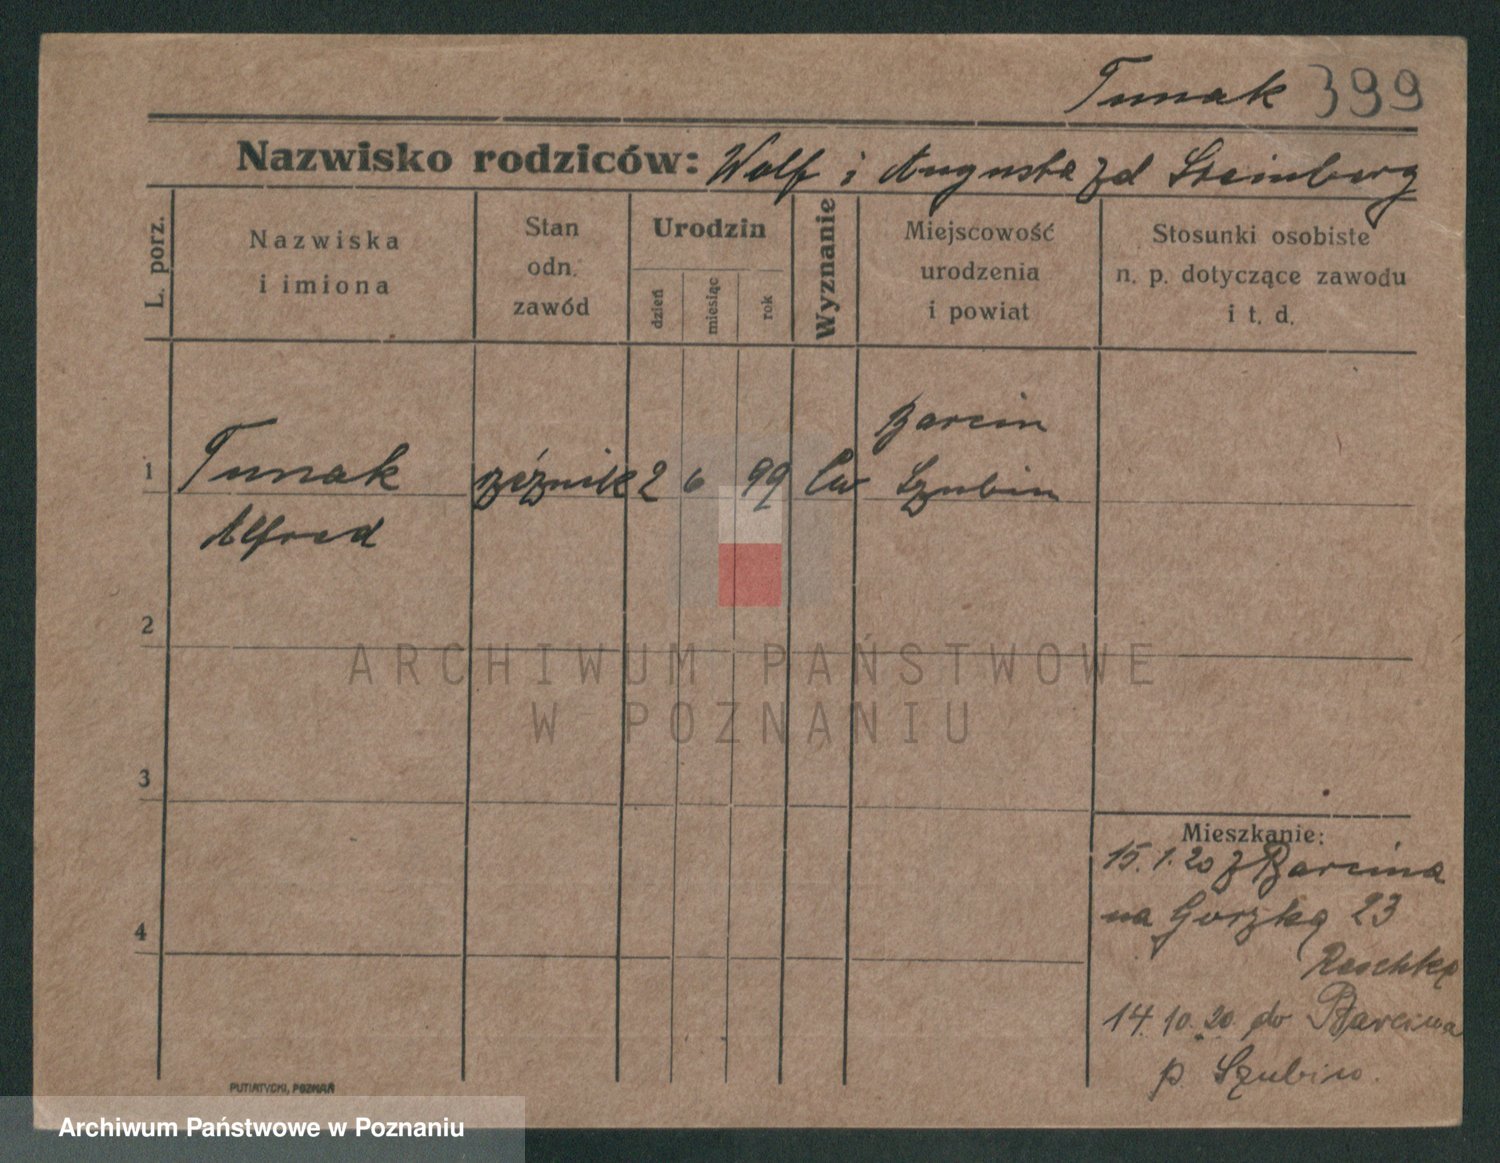 Tunak 399
Nazwisko rodziców: Wolf i Augusta zd Steinberg
L. porz.
Nazwiska
i imiona
Stan
odn.
zawód
Urodzin
dzień
miesiąc
rok
Wyznanie
Miejscowość
urodzenia
i powiat
Stosunki osobiste
n. p. dotyczące zawodu
i t. d.
Barcin
1 Tunak rzeźnik 2 6 99 Szubin
Alfred
2
ARCHIWUM PAŃSTWOWE
W POZNANIU
3
Mieszkanie:
15.1.20 z Barcina
na Gorzką 23
4
14.10.20. do Barcina
p. Szubin.
PUTIATYCKI, POZNAŃ
Archiwum Państwowe w Poznaniu